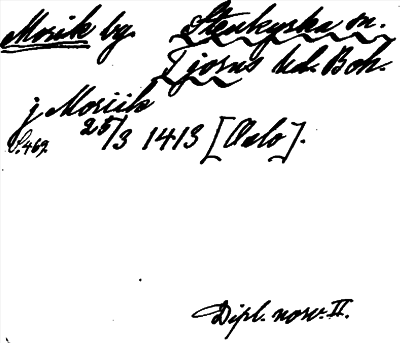 Morik by. Stenkyrka sn.
Tjörns hd. Boh.
j Moriik
S. 467. 25/3 1413 [Oslo].
Dipl. norv. II.